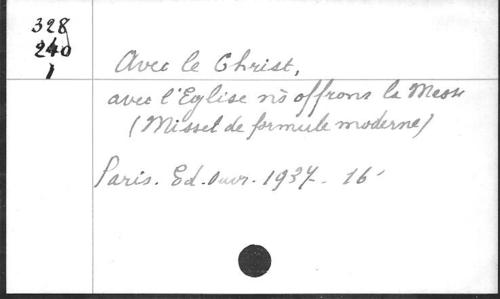 328
240
1
Avec le Christ,
avec l'Eglise ns offrons la Messe
(Missel de formule moderne)
Paris. Ed. Ouvr. 1937. 16°